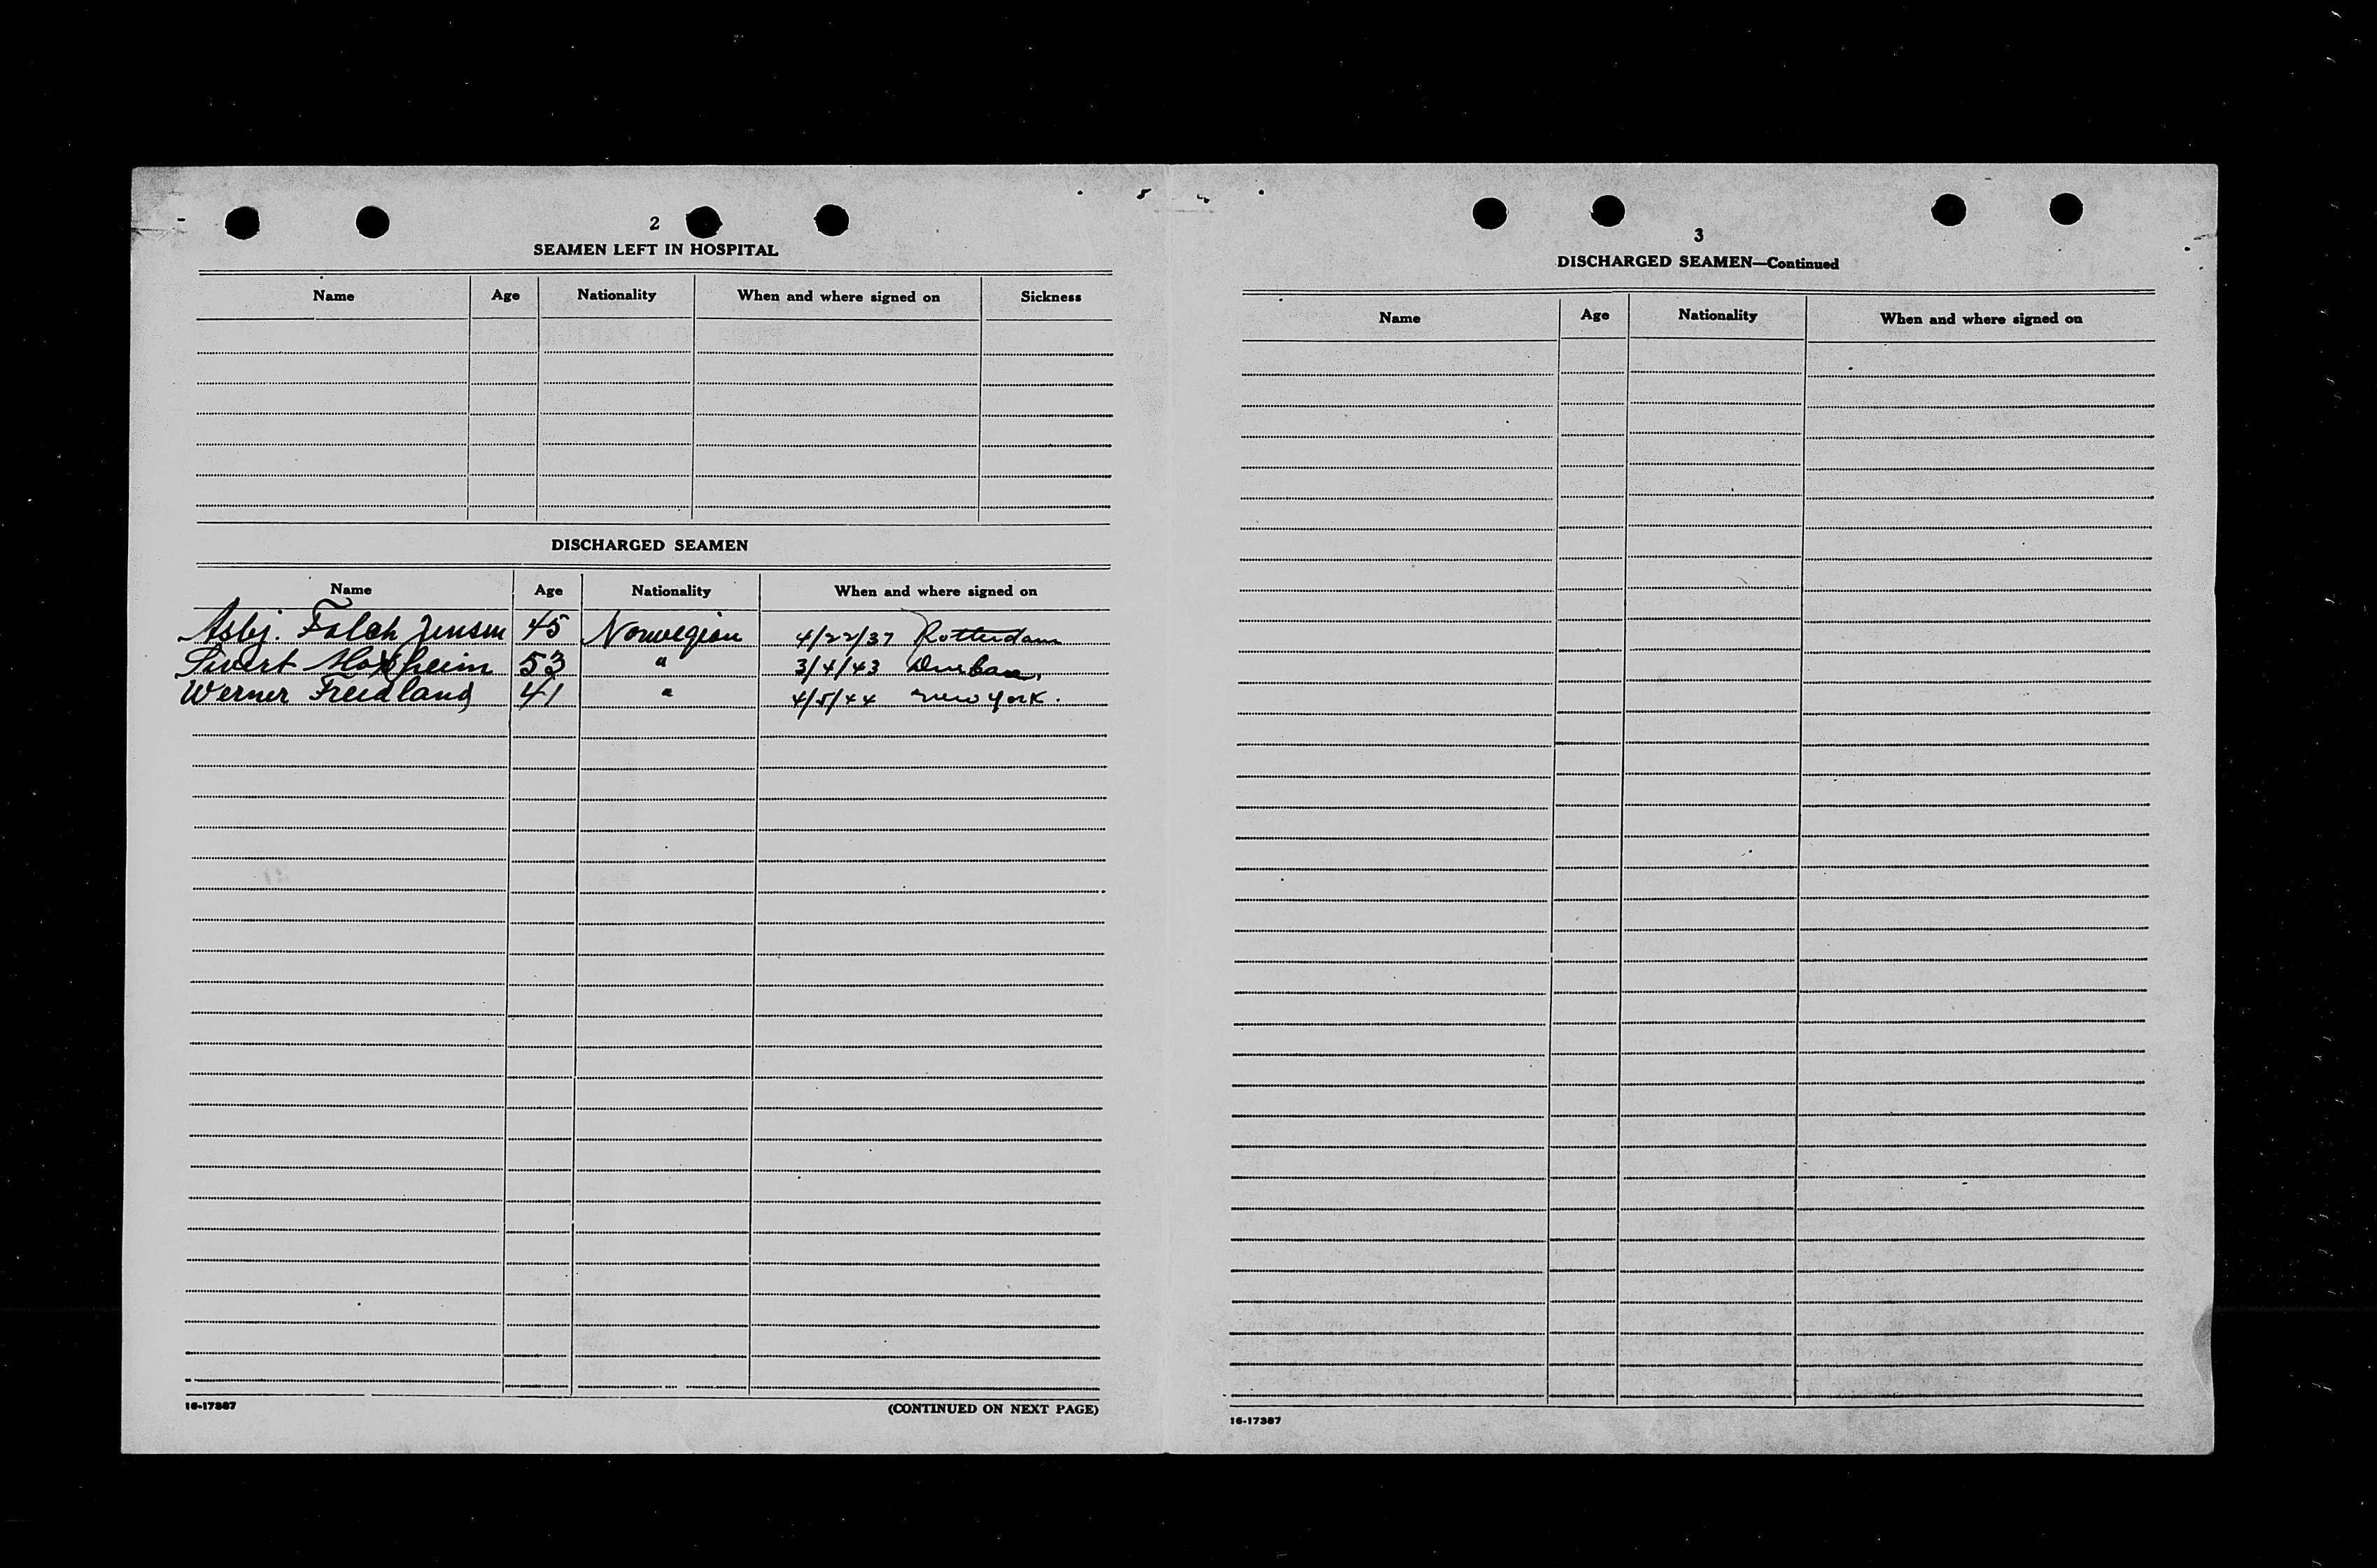 2
SEAMEN LEFT IN HOSPITAL
Name Age Nationality When and where signed on Sickness
DISCHARGED SEAMEN
Name Age Nationality When and where signed on
Asbj. Falch Jensen 45 Norwegian 4/22/37 Rotterdam
Sivert 53 " 3/4/43 Durban,
Werner Freidland 41 " 4/5/44 New York.
16-17387
(CONTINUED ON NEXT PAGE)
3
DISCHARGED SEAMEN—Continued
Name Age Nationality When and where signed on
16-17387